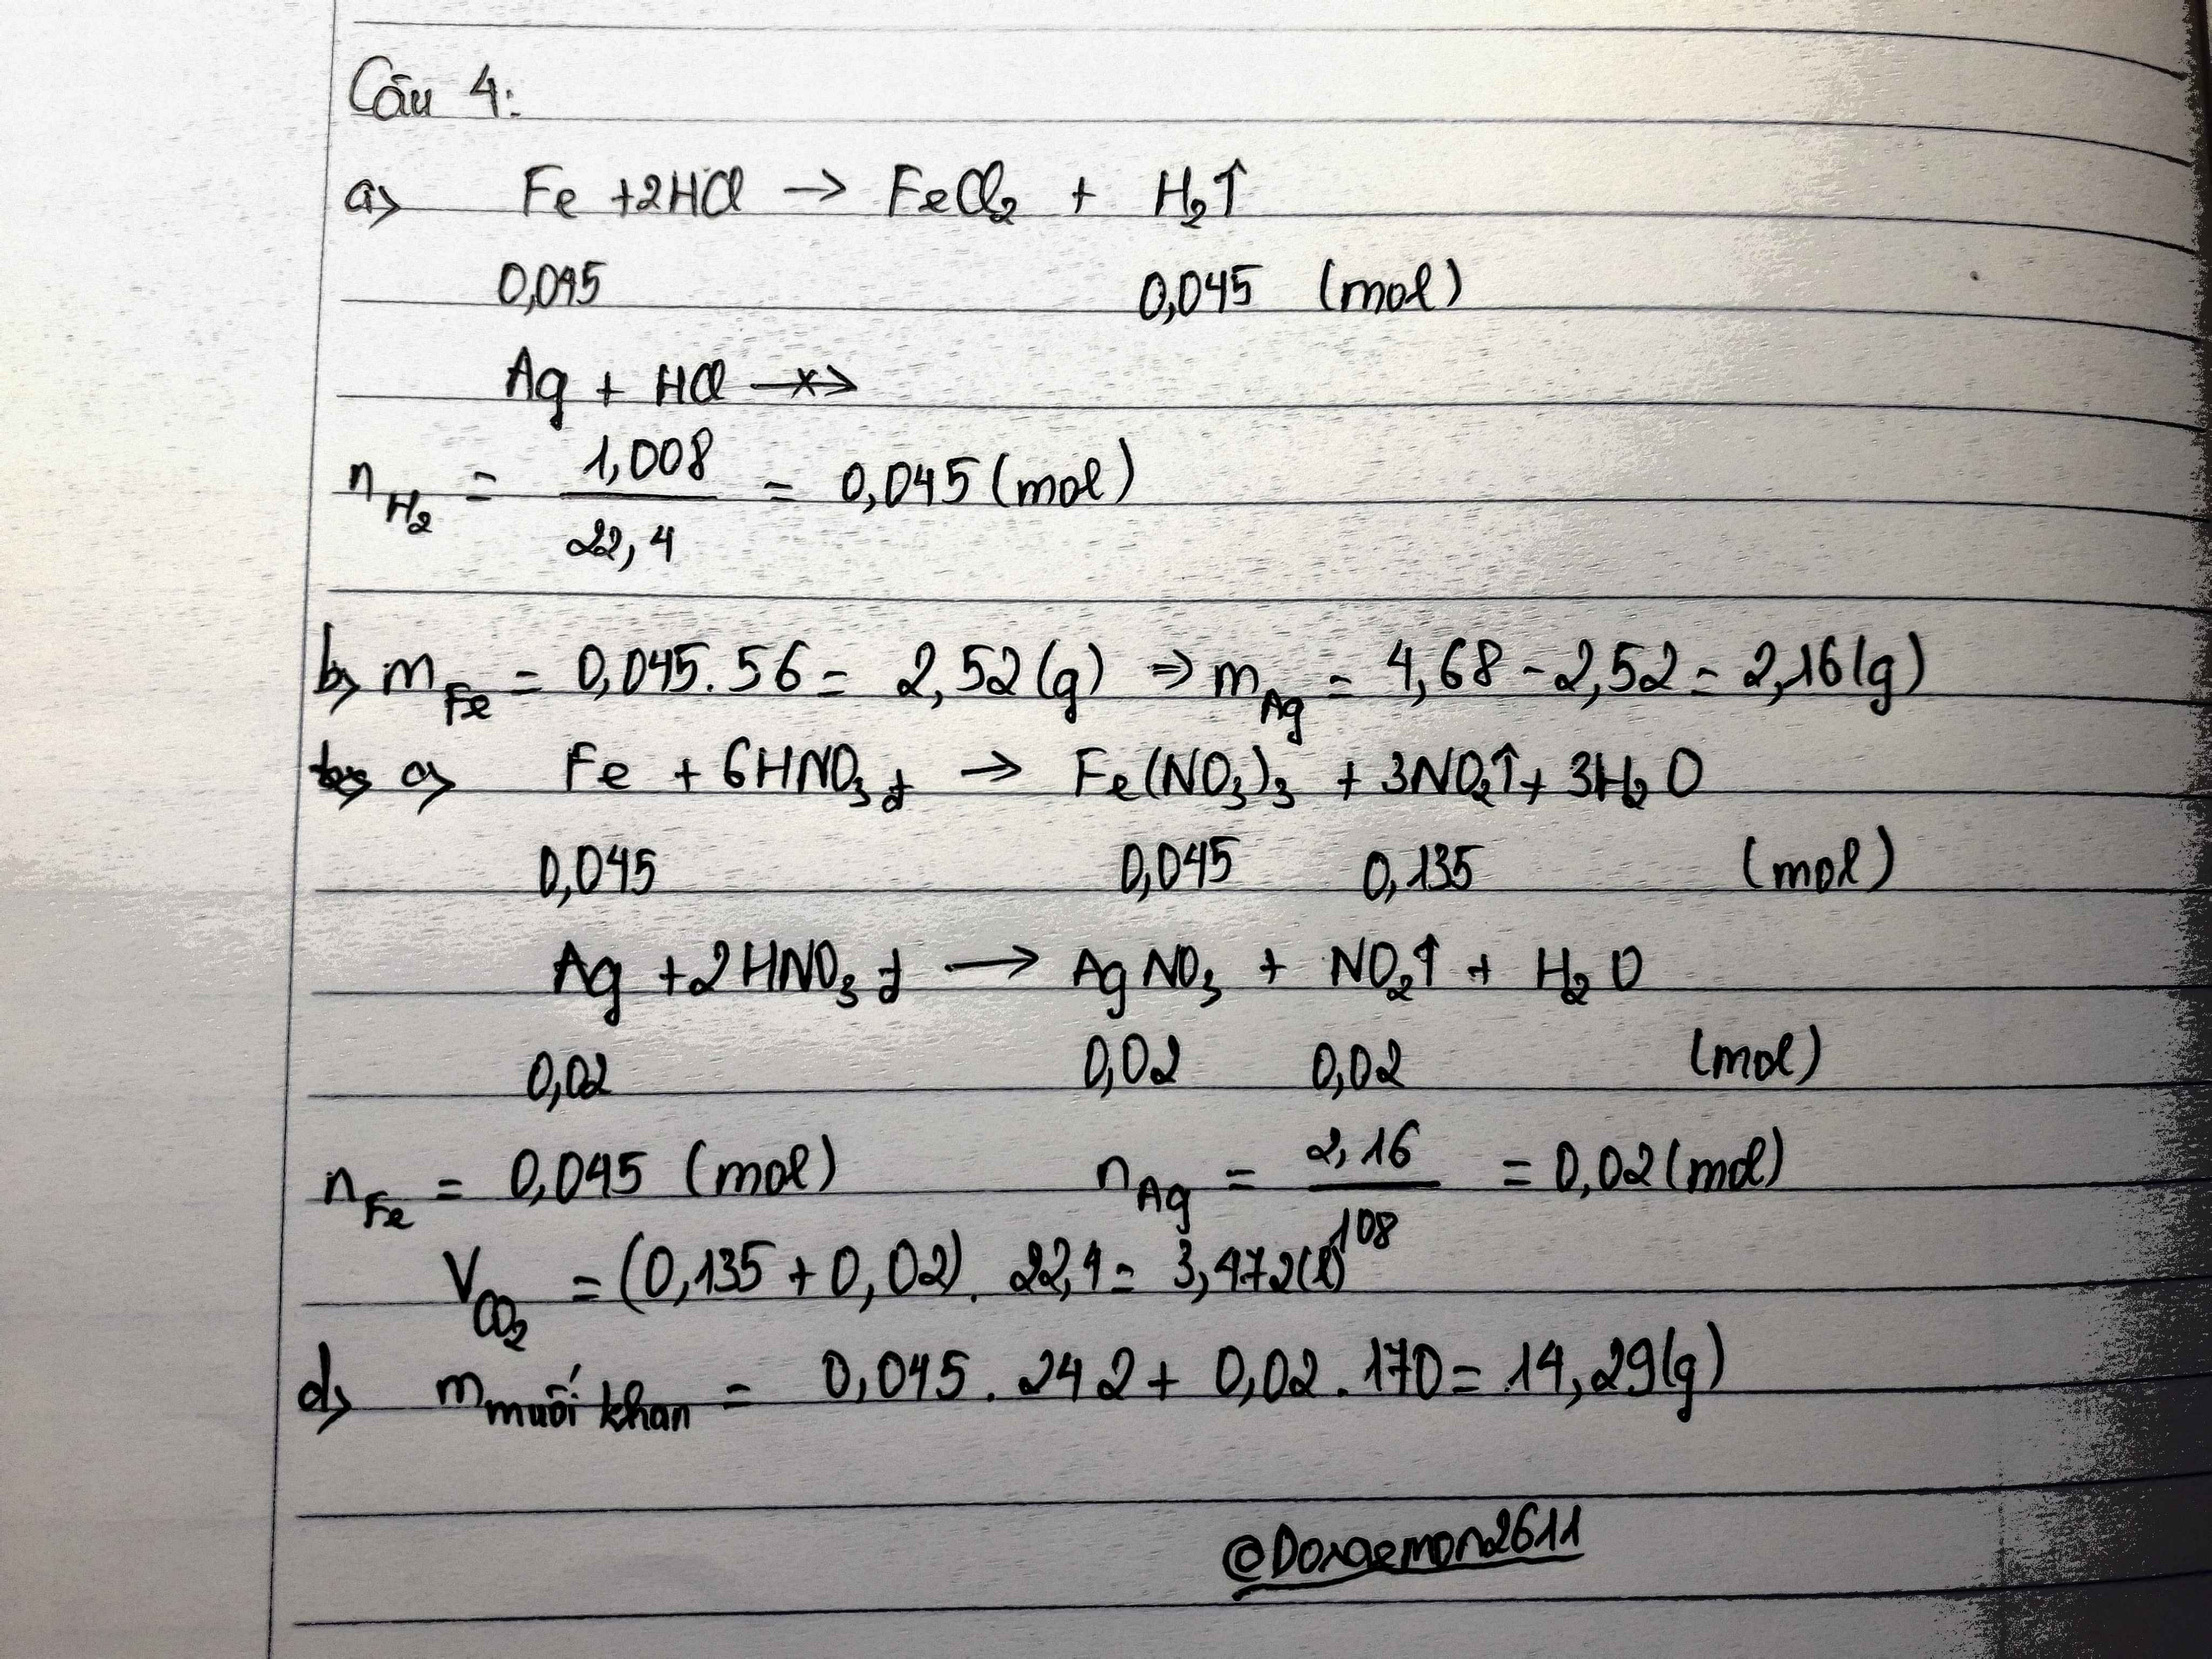 Câu 4:
a> Fe + 2HCl → FeCl₂ + H₂↑
0,045 0,045 (mol)
Ag + HCl -x->
n H₂ = 1,008 / 22,4 = 0,045 (mol)
b> m Fe = 0,045 . 56 = 2,52 (g) ⇒ m Ag = 4,68 - 2,52 = 2,16 (g)
c> Fe + 6HNO₃ đ → Fe(NO₃)₃ + 3NO₂↑ + 3H₂O
0,045 0,045 0,135 (mol)
Ag + 2HNO₃ đ → AgNO₃ + NO₂↑ + H₂O
0,02 0,02 0,02 (mol)
n Fe = 0,045 (mol) n Ag = 2,16 / 108 = 0,02 (mol)
V CO₂ = (0,135 + 0,02) . 22,4 = 3,472 (l)
d> m muối khan = 0,045 . 242 + 0,02 . 170 = 14,29 (g)
@Doraemon2611